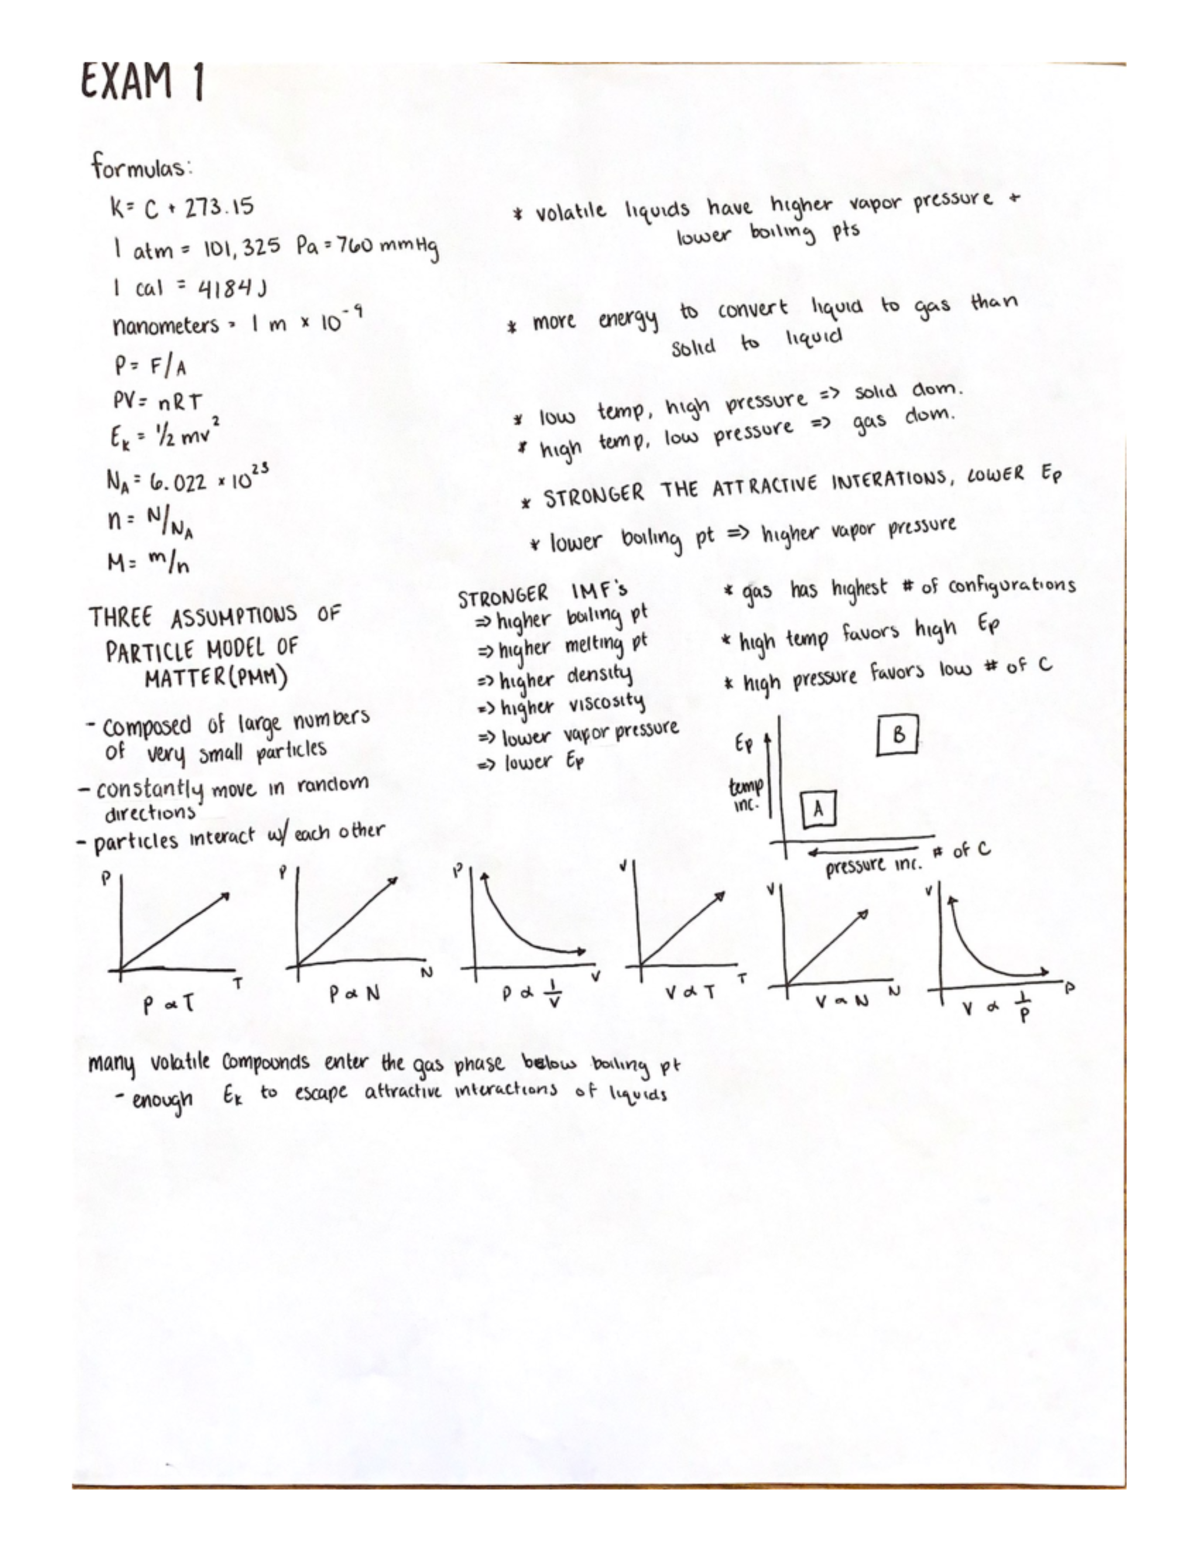 EXAM 1
formulas:
K = C + 273.15
1 atm = 101,325 Pa = 760 mmHg
1 cal = 4184 J
nanometers = 1 m x 10^-9
P = F/A
PV = nRT
E_k = 1/2 mv^2
N_A = 6.022 x 10^23
n = N/N_A
M = m/n
* volatile liquids have higher vapor pressure +
lower boiling pts
* more energy to convert liquid to gas than
solid to liquid
* low temp, high pressure => solid dom.
* high temp, low pressure => gas dom.
* STRONGER THE ATTRACTIVE INTERATIONS, LOWER Ep
* lower boiling pt => higher vapor pressure
THREE ASSUMPTIONS OF
PARTICLE MODEL OF
MATTER(PMM)
- composed of large numbers
of very small particles
- constantly move in random
directions
- particles interact w/ each other
STRONGER IMF's
=> higher boiling pt
=> higher melting pt
=> higher density
=> higher viscosity
=> lower vapor pressure
=> lower Ep
* gas has highest # of configurations
* high temp favors high Ep
* high pressure favors low # of C
Ep
temp
inc.
B
A
pressure inc.
# of C
P
T
P ∝ T
P
N
P ∝ N
P
V
P ∝ 1/V
V
T
V ∝ T
V
N
V ∝ N
V
P
V ∝ 1/P
many volatile compounds enter the gas phase below boiling pt
- enough E_k to escape attractive interactions of liquids